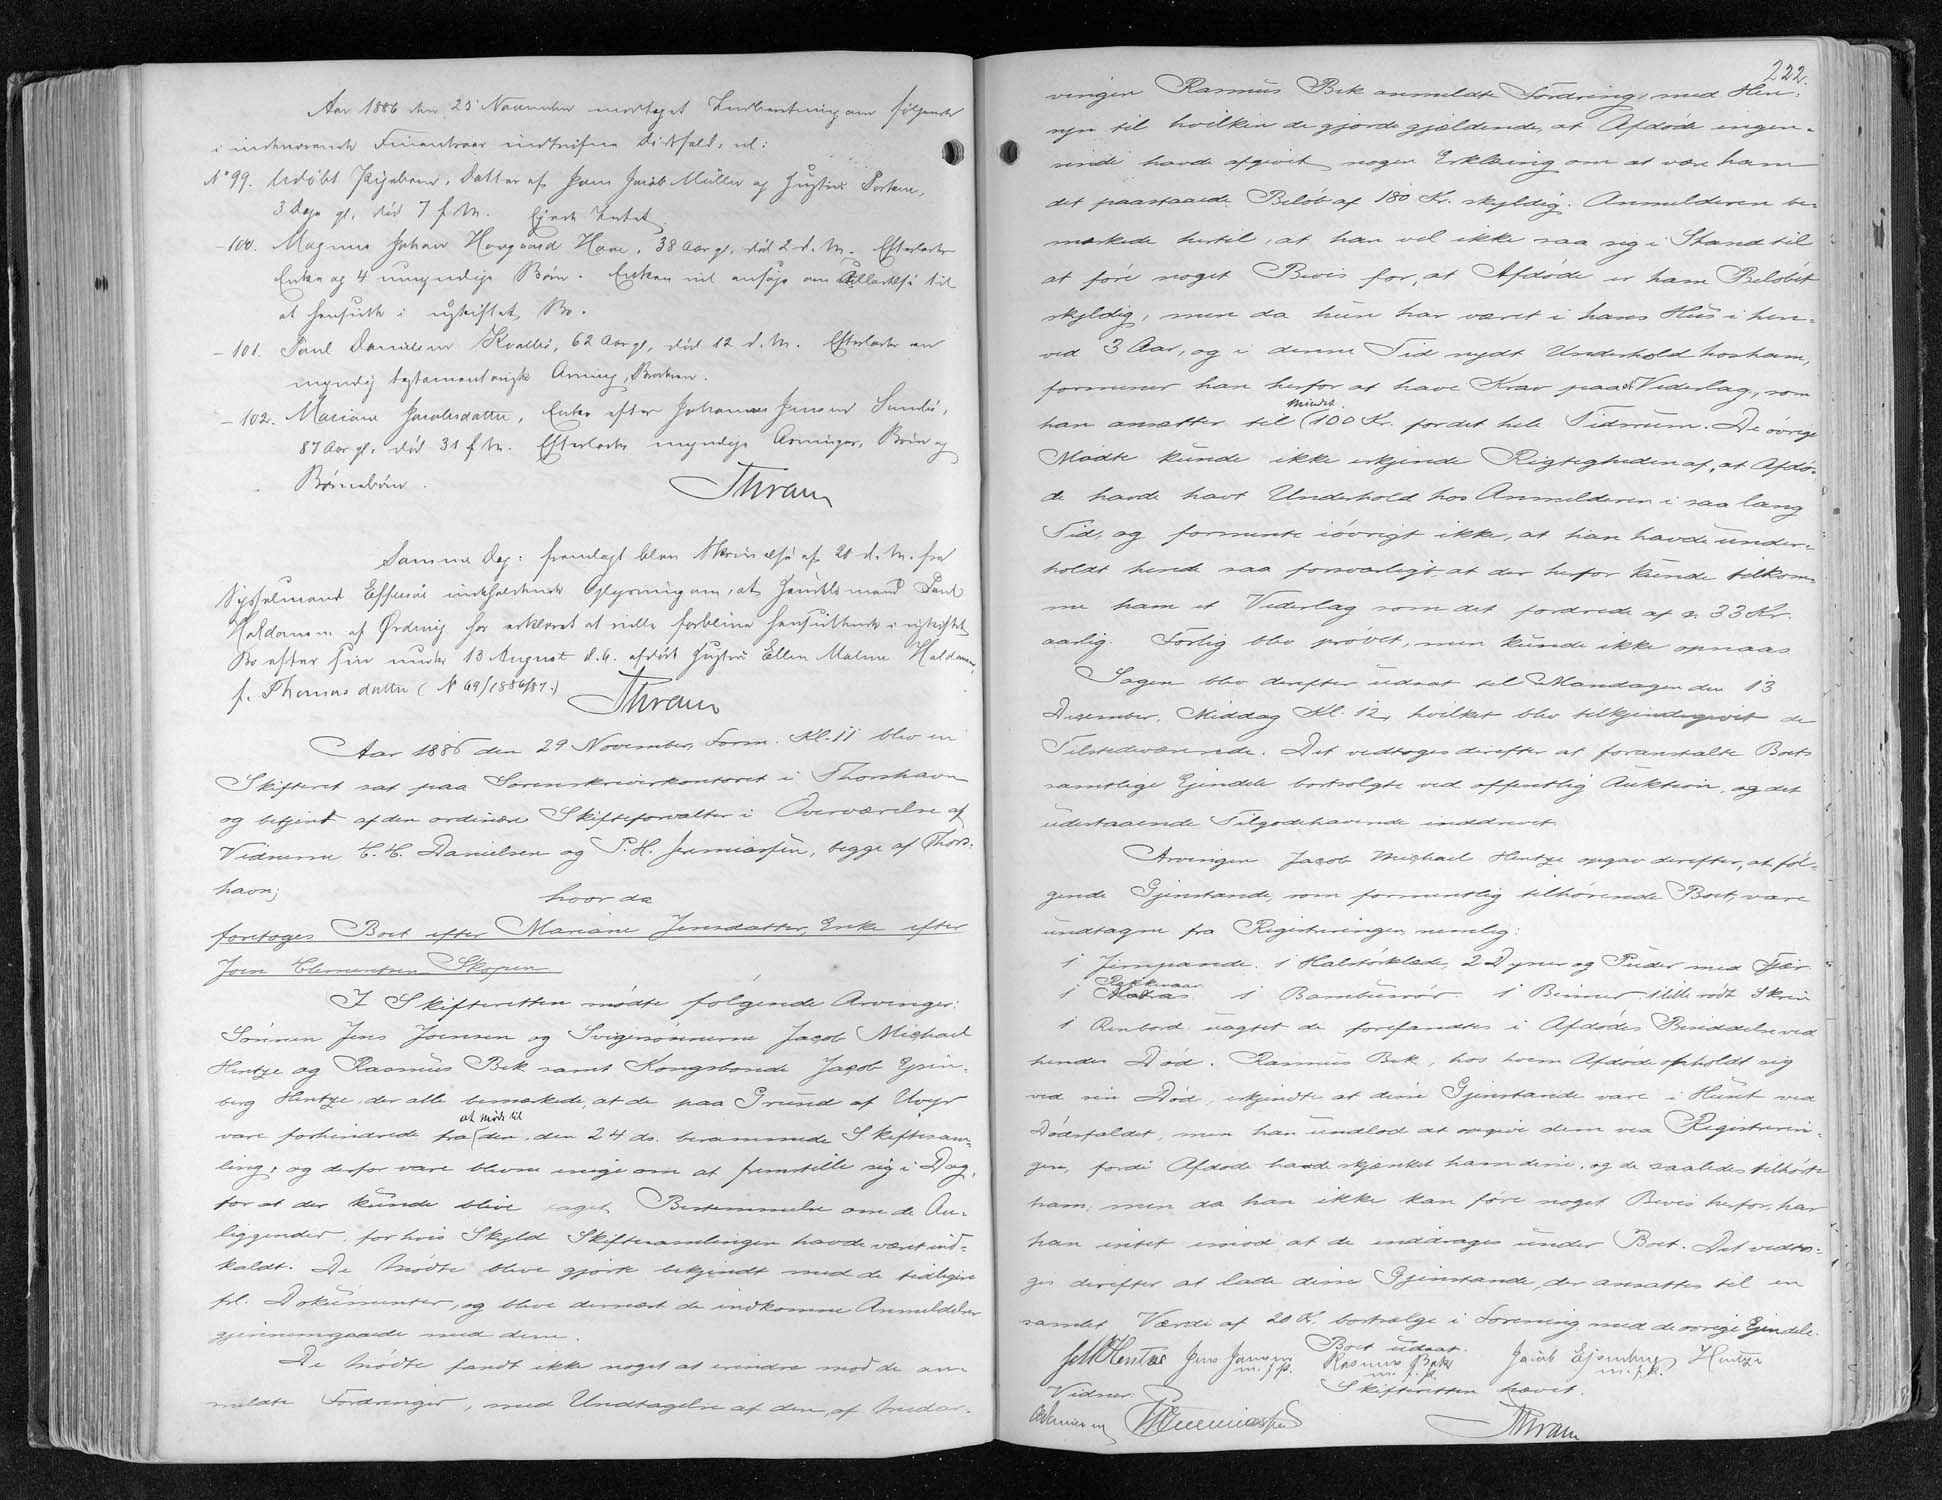 Aar 1886 den 25 November modtaget Indberetning om følgende
i indeværende Finantsaar indtrufne Dødsfald, nl:
No 99. Udøbt Pigebarn, Datter af Hans Jacob Müller og Hustru Porkere,
3 Dage gl, død 7 f. M. Ejede Intet.
- 100. Magnus Johan Hovgaard Have, 38 Aar gl, død 2 d. M. Efterlader
Enke og 4 umyndige Børn. Enken vil ansøge om Tilladelse til
at hensidde i uskiftet Bo.
- 101. Poul Danielsen Kvalbø, 62 Aar gl, død 12 d. M. Efterlader en
myndig testamentarisk Arving, Broderen.
- 102. Mariane Jacobsdatter, Enke efter Johannes Jensen Sumbø,
87 Aar gl, død 31 f. M. Efterlader myndige Arvinger, Børn og
Børnebørn.
Thram
Samme Dag: fremlagt blev Skrivelse af 20 d. M. fra
Sysselmand Effersøe indeholdende Oplysning om, at Huusmand Poul
Haldansen af Ørdevig har erklæret at ville forblive hensiddende i uskiftet
Bo efter sin under 13 August d. A. afdøde Hustru Ellen Malene Haldansen,
f. Thomasdatter (No 69/1886/87.)
Thram
Aar 1886 den 29 November, Form. Kl. 11 blev en
Skifteret sat paa Sorenskriverkontoret i Thorshavn
og betjent af den ordinære Skifteforvalter i Overværelse af
Vidnerne C. C. Danielsen og P. H. Jeremiassen, begge af Thors-
havn;
hvor da
foretoges Boet efter Mariane Jensdatter, Enke efter
Joen Clementsen Skopen
I Skifteretten mødte følgende Arvinger:
Sønnen Jens Joensen og Svigersønnerne Jacob Michael
Hentze og Rasmus Bek samt Kongsbonde Jacob Ejsen-
berg Hentze, der alle bemærkede, at de paa Grund af Uvejr
at møde til
vare forhindrede fra den, den 24 ds. berammede Skiftesam-
ling, og derfor vare blevne enige om at fremstille sig i Dag,
for at der kunde blive taget Bestemmelse om de An-
liggender, for hvis Skyld Skiftesamlingen havde været ind-
kaldt. De Mødte bleve gjorte bekjendt med de tidligere
frl. Dokumenter, og bleve dernæst de indkomne Anmeldelser
gjennemgaaede med dem.
De Mødte fandt ikke noget at erindre mod de an-
meldte Fordringer, med Undtagelse af den af Medar-
222.
vingen Rasmus Bek anmeldte Fordring, med Hen-
syn til hvilken de gjorde gjældende, at Afdøde ingen-
sinde havde afgivet nogen Erklæring om at være ham
det paastaaede Beløb af 180 Kr. skyldig. Anmelderen be-
mærkede hertil, at han vel ikke saa sig i Stand til
at føre noget Bevis for, at Afdøde er ham Beløbet
skyldig, men da hun har været i hans Hus i hen-
ved 3 Aar, og i denne Tid nydt Underhold hos ham,
formener han herfor at have Krav paa et Vederlag, som
mindst
han ansætter til 100 Kr. for det hele Tidsrum. De øvrige
Mødte kunde ikke erkjende Rigtigheden af, at Afdø-
de havde havt Underhold hos Anmelderen i saa lang
Tid, og formente iøvrigt ikke, at han havde under-
holdt hende saa forsvarligt, at der herfor kunde tilkom-
me ham et Vederlag som det fordrede af c. 33 Kr.
aarlig. Forlig blev prøvet, men kunde ikke opnaas
Sagen blev derefter udsat til Mandagen den 13
December, Middag Kl. 12, hvilket blev tilkjendegivet de
Tilstedeværende. Det vedtoges derefter at foranstalte Boets
samtlige Ejendele bortsolgte ved offentlig Auktion, og det
udestaaende Tilgodehavende inddrevet
Arvingen Jacob Michael Hentze opgav derefter, at føl-
gende Gjenstande, som formentlig tilhørende Boet, vare
undtagne fra Registreringen, nemlig:
1 Jernpande. 1 Halstørklæde, 2 Dyner og Puder med Fjær
Rekkevaar
1 1 Bambusrør. 1 1 lille rødt Skrin
1 uagtet de forefandtes i Afdødes Besiddelse ved
hendes Død. Rasmus Bek, hos hvem Afdøde opholdt sig
ved sin Død, erkjendte at disse Gjenstande vare i Huset ved
Dødsfaldet, men han undlod at opgive dem ved Registrerin-
gen, fordi Afdøde havde skjænket ham disse, og de saaledes tilhørte
ham; men da han ikke kan føre noget Bevis herfor, har
han intet imod at de inddrages under Boet. Det vedto-
ges derefter at lade disse Gjenstande, der ansattes til en
samlet Værdi af 20 Kr. bortsælge i Forening med de øvrige Ejendele.
Boet udsat.
JMHentze Jens Joensen Rasmus Bek Jacob Ejsenberg Hentze
m. f. P. m. f. P. m. f. P.
Vidner. Skifteretten hævet.
CDanielsen PHJeremiassen
Thram